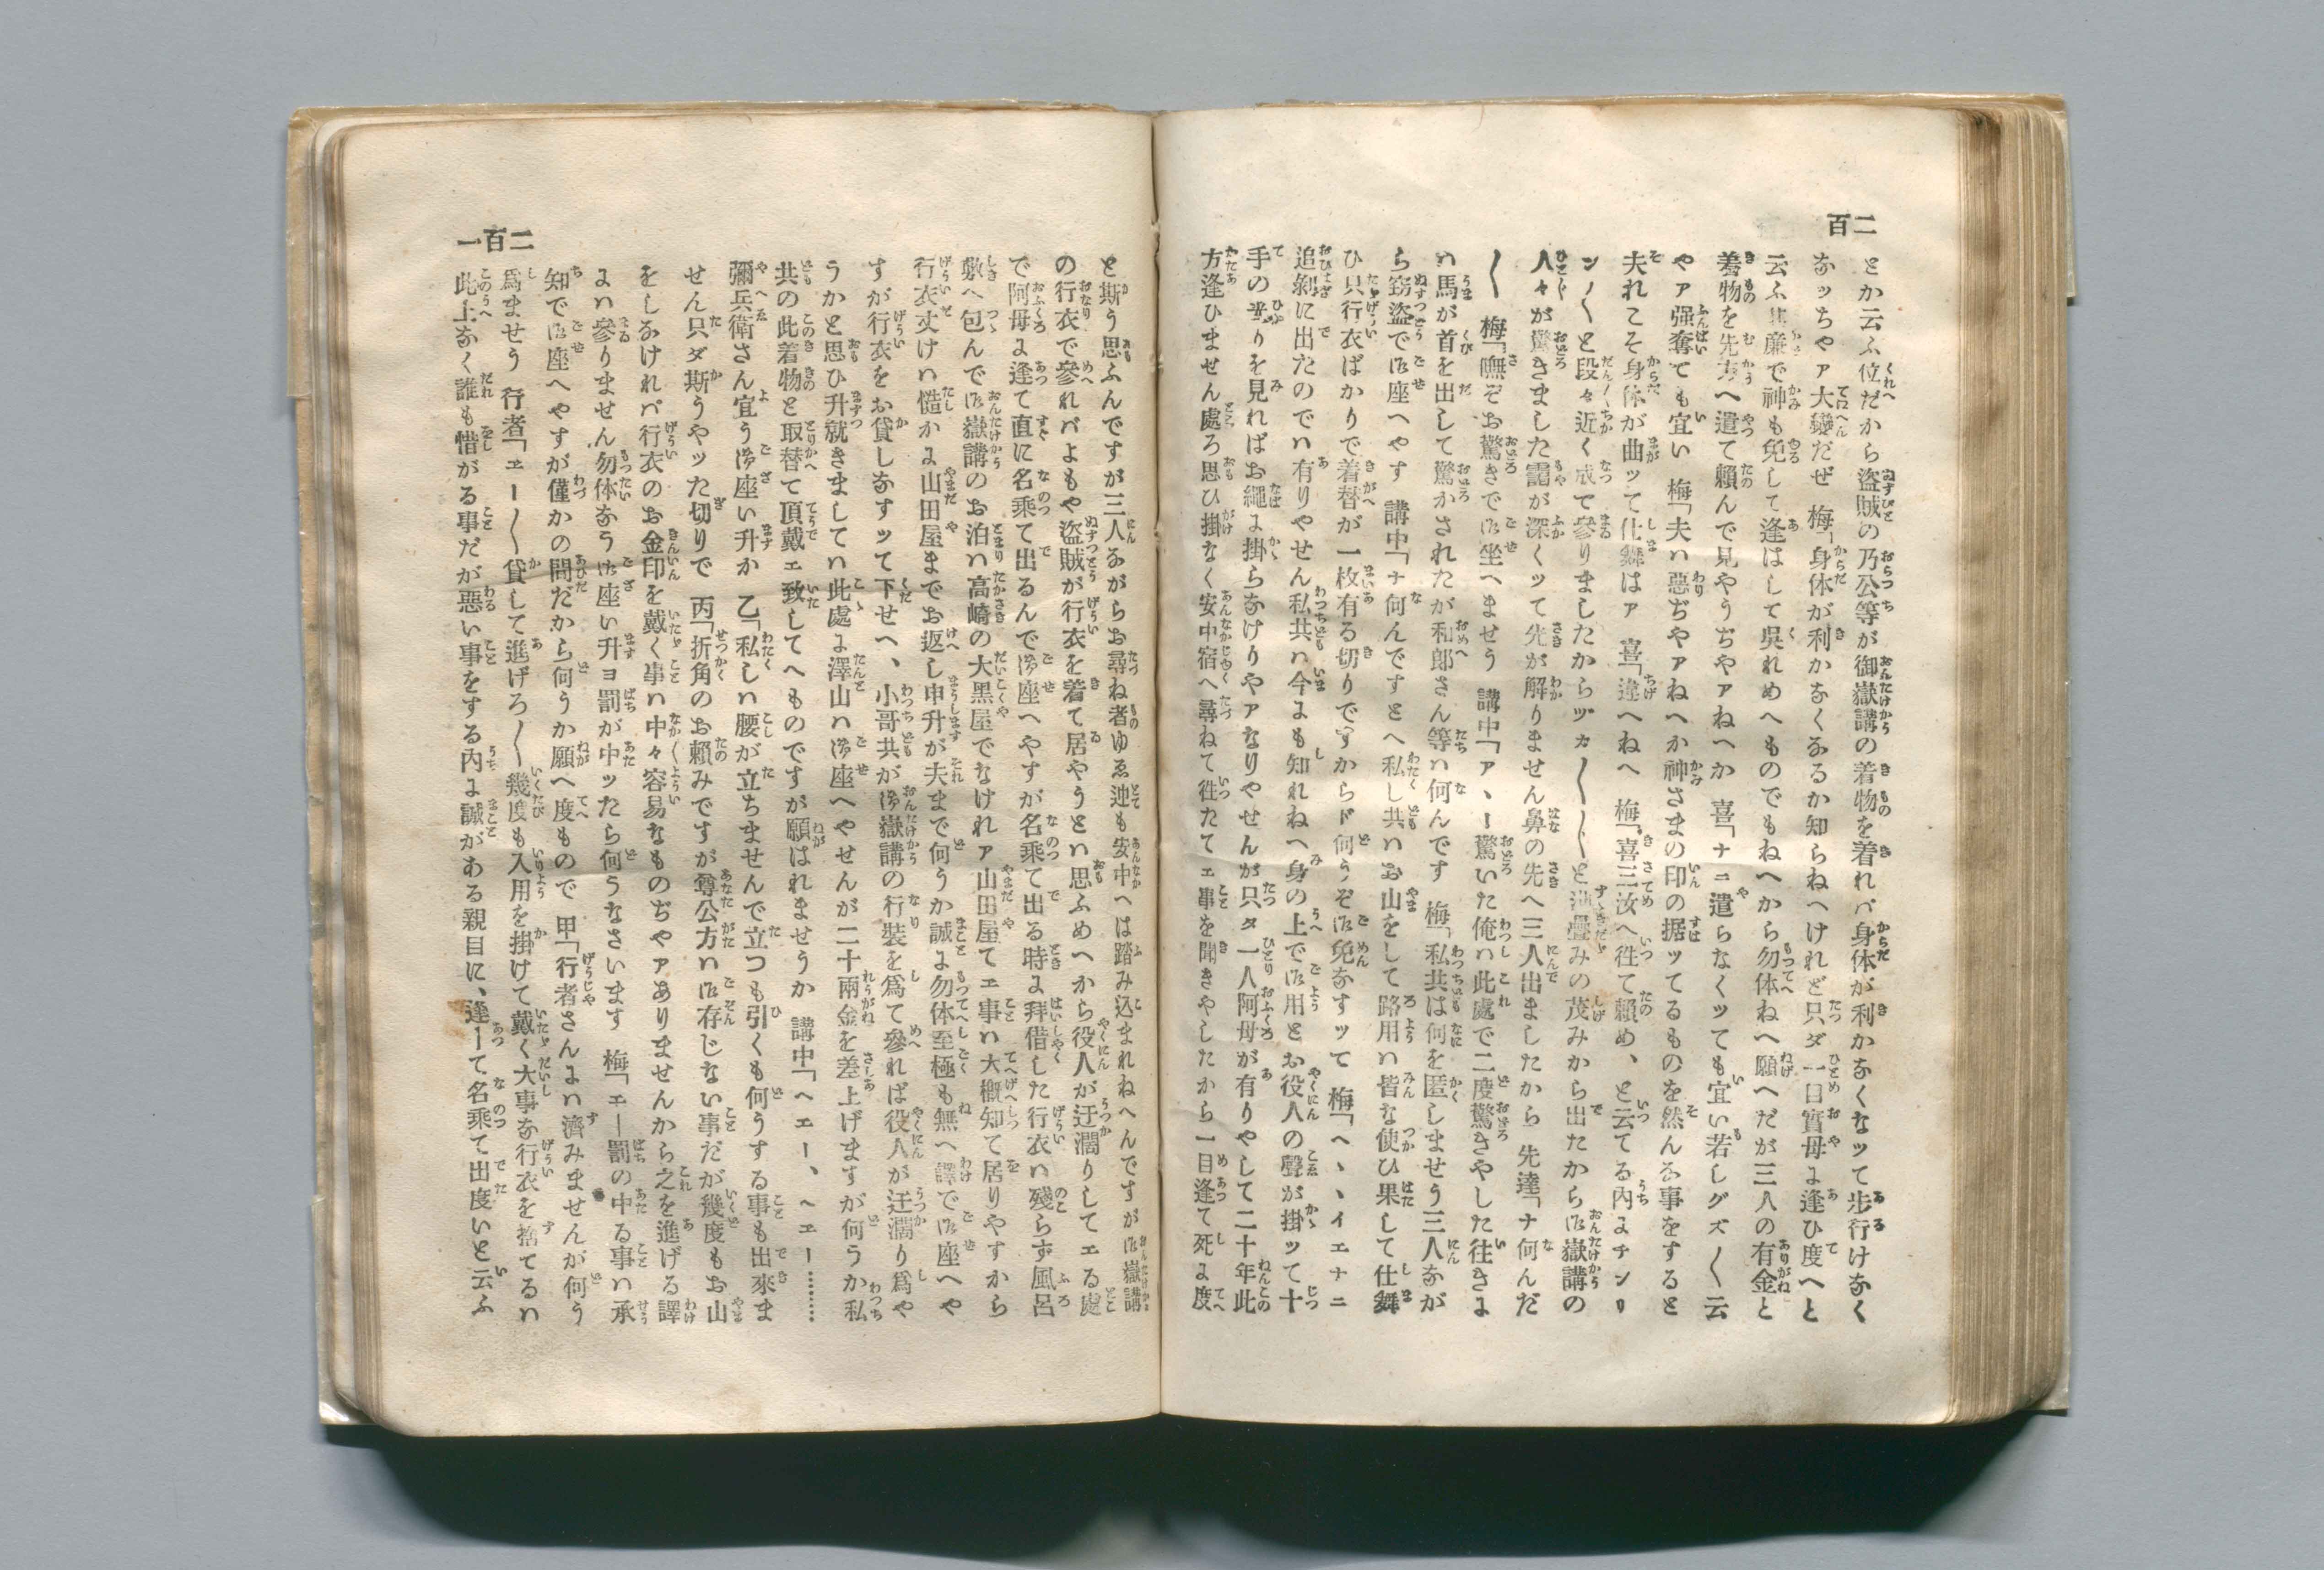 二百
とか云ふ位だから盗賊の乃公等が御嶽講の着物を着れバ身体が利かなくなッて歩行けなく
なッちやァ大變だぜ　梅「身体が利かなくなるか知らねへけれど只ダ一目實母に逢ひ度へと
云ふ其廉で神も免して逢はして呉れめへものでもねへから勿体ねへ願へだが三人の有金と
着物を先方へ遣て頼んで見やうぢやァねへか　喜「ナニ遣らなくッても宜い若しグズ〱云
やァ强奪ても宜い　梅「夫ハ惡ぢやァねへか神さまの印の据ッてるものを然んな事をすると
夫れこそ身体が曲ッて仕舞はァ　喜「違へねへ　梅「喜三汝へ徃て頼め、と云てる內にチンリ
ン〱と段々近く成て參りましたからヅカ〱〱と疊みの茂みから出たから御嶽講の
人々が驚きました靄が深くッて先が解りません鼻の先へ三人出ましたから　先達「ナ何んだ
〱　梅「嘸ぞお驚きで御坐へませう　講中「アヽー驚いた俺ハ此處で二度驚きやした往きに
ハ馬が首を出して驚かされたが和郎さん等ハ何んです　梅「私共は何を匿しませう三人なが
ら窃盗で御座へやす　講中「ナ何んですとへ私し共ハお山をして路用ハ皆な使ひ果して仕舞
ひ只行衣ばかりで着替が一枚有る切りですからド何うぞ御免なすッて　梅「ヘヽヽイエナニ
追剝に出たのでハ有りやせん私共ハ今にも知れねへ身の上で御用とお役人の聲が掛ッて十
手の光りを見ればお繩に掛らなけりやァなりやせんが只タ一人阿母が有りやして二十年此
方逢ひません處ろ思ひ掛なく安中宿へ尋ねて徃たてエ事を聞きやしたから一目逢て死に度
二百一
と斯う思ふんですが三人ながらお尋ね者ゆゑ迚も安中へは踏み込まれねへんですが御嶽講
の行衣で參れバよもや盗賊が行衣を着て居やうとハ思ふめへから役人が迂濶りしてエる處
で阿母に逢て直に名乘て出るんで御座へやすが名乘て出る時に拜借した行衣ハ殘らず風呂
敷へ包んで御嶽講のお泊ハ高崎の大黑屋でなけれァ山田屋てエ事ハ大槪知て居りやすから
行衣丈けハ慥かに山田屋までお返し申升が夫まで何うか誠に勿体至極も無へ譯で御座へや
すが行衣をお貸しなすッて下せへ、小哥共が御嶽講の行裝を爲て參れば役人が迂濶り爲や
うかと思ひ升就きましてハ此處に澤山ハ御座へやせんが二十兩金を差上げますが何うか私
共の此着物と取替て頂戴エ致してへものですが願はれませうか　講中「ヘエー、ヘエー………
彌兵衛さん宜う御座い升か　乙「私しハ腰が立ちませんで立つも引くも何うする事も出來ま
せん只ダ斯うやッた切りで　丙「折角のお賴みですが尊公方ハ御存じない事だが幾度もお山
をしなけれバ行衣のお金印を戴く事ハ中々容易なものぢやァありませんから之を進げる譯
にハ參りません勿体なう御座い升ヨ罰が中ッたら何うなさいます　梅「エー罰の中る事ハ承
知で御座へやすが僅かの間だから何うか願へ度もので　甲「行者さんにハ濟みませんが何う
爲ませう　行者「エー〱貸して進げろ〱幾度も入用を掛けて戴く大事な行衣を捨てるハ
此上なく誰も惜がる事だが惡い事をする內に誠がある親目に、逢ーて名乘て出度いと云ふ